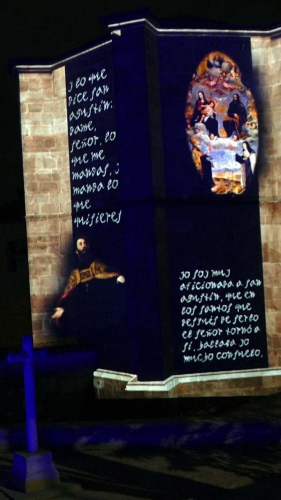 y lo que
dice san
agustín:
dame,
señor, lo
que me
mandas, y
manda lo
que
quisieres
yo soy muy
aficionada a san
agustín, que en
los santos que
después de serlo
el señor tornó a
sí, hallaba yo
mucho consuelo.